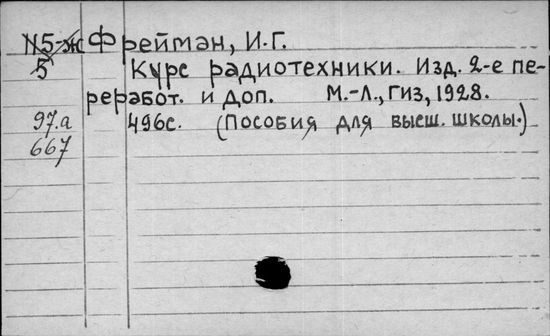 N5-ж Фрейман, И.Г.
5 Курс радиотехники. Изд. 2-е пе-
реработ. и доп. М.-Л., Гиз, 1928.
97.а 496с. (Пособия для высш. школы.)
667